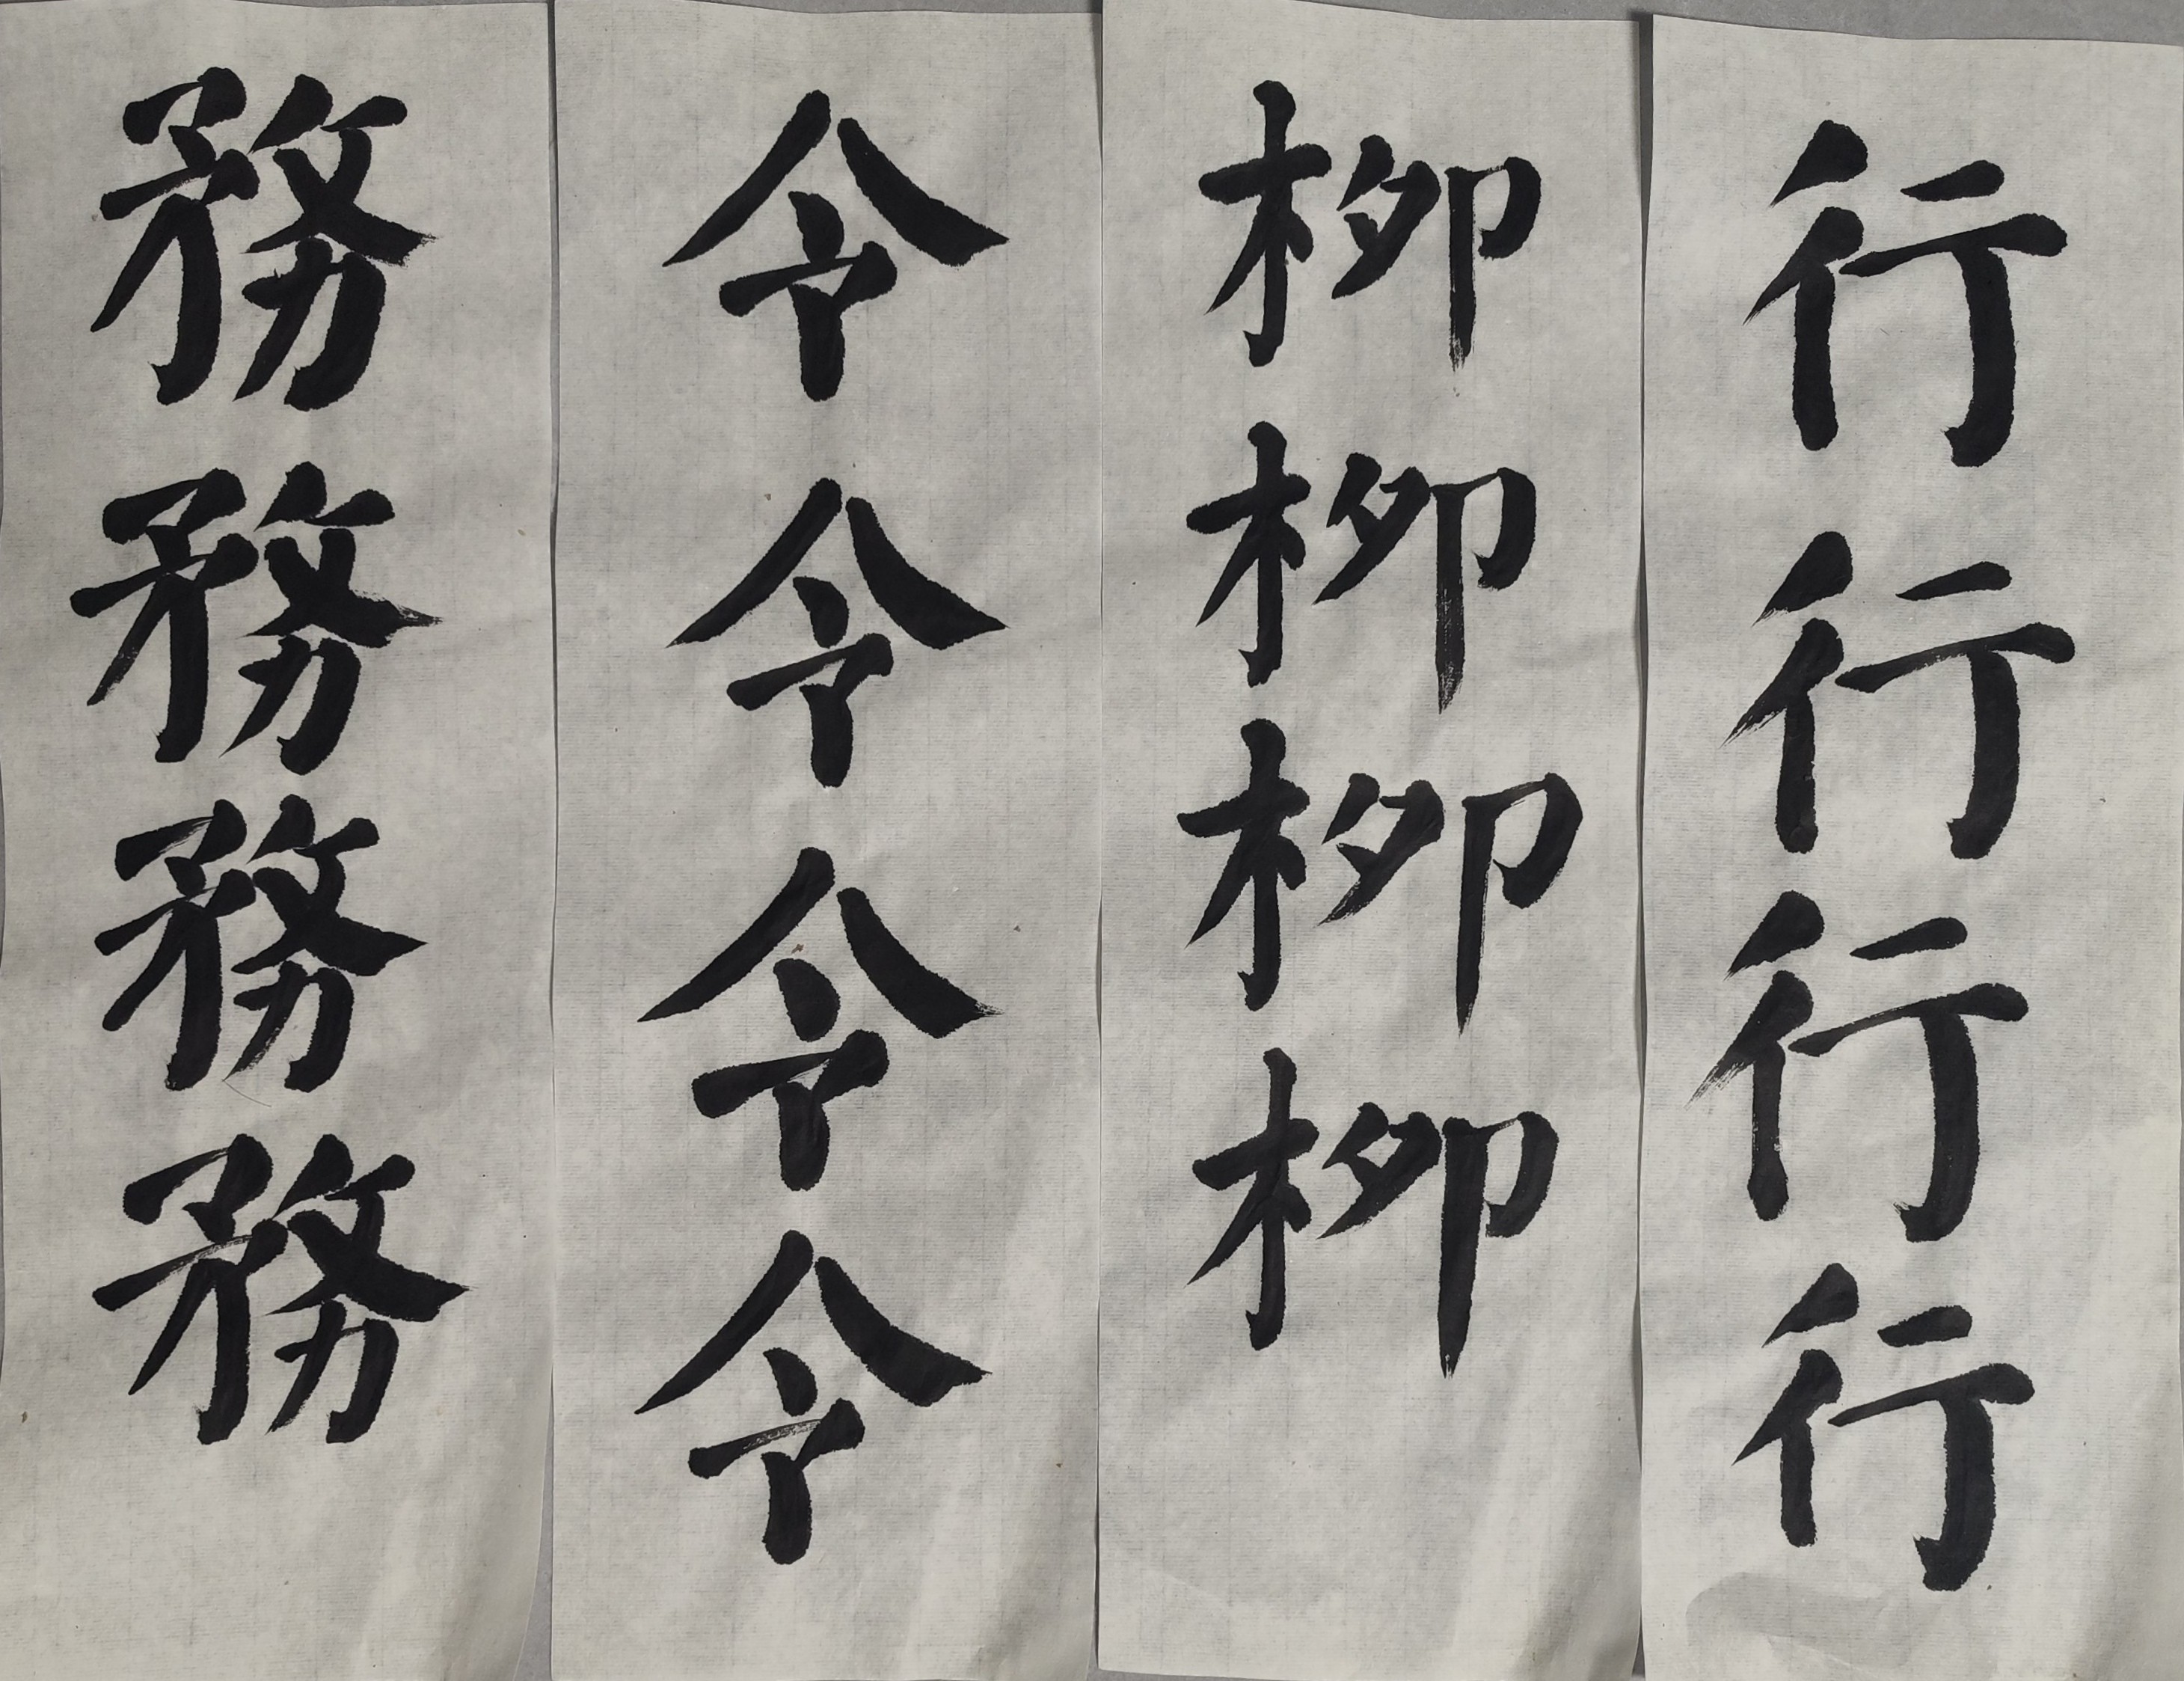 行行行行
柳柳柳柳
令令令令
務務務務